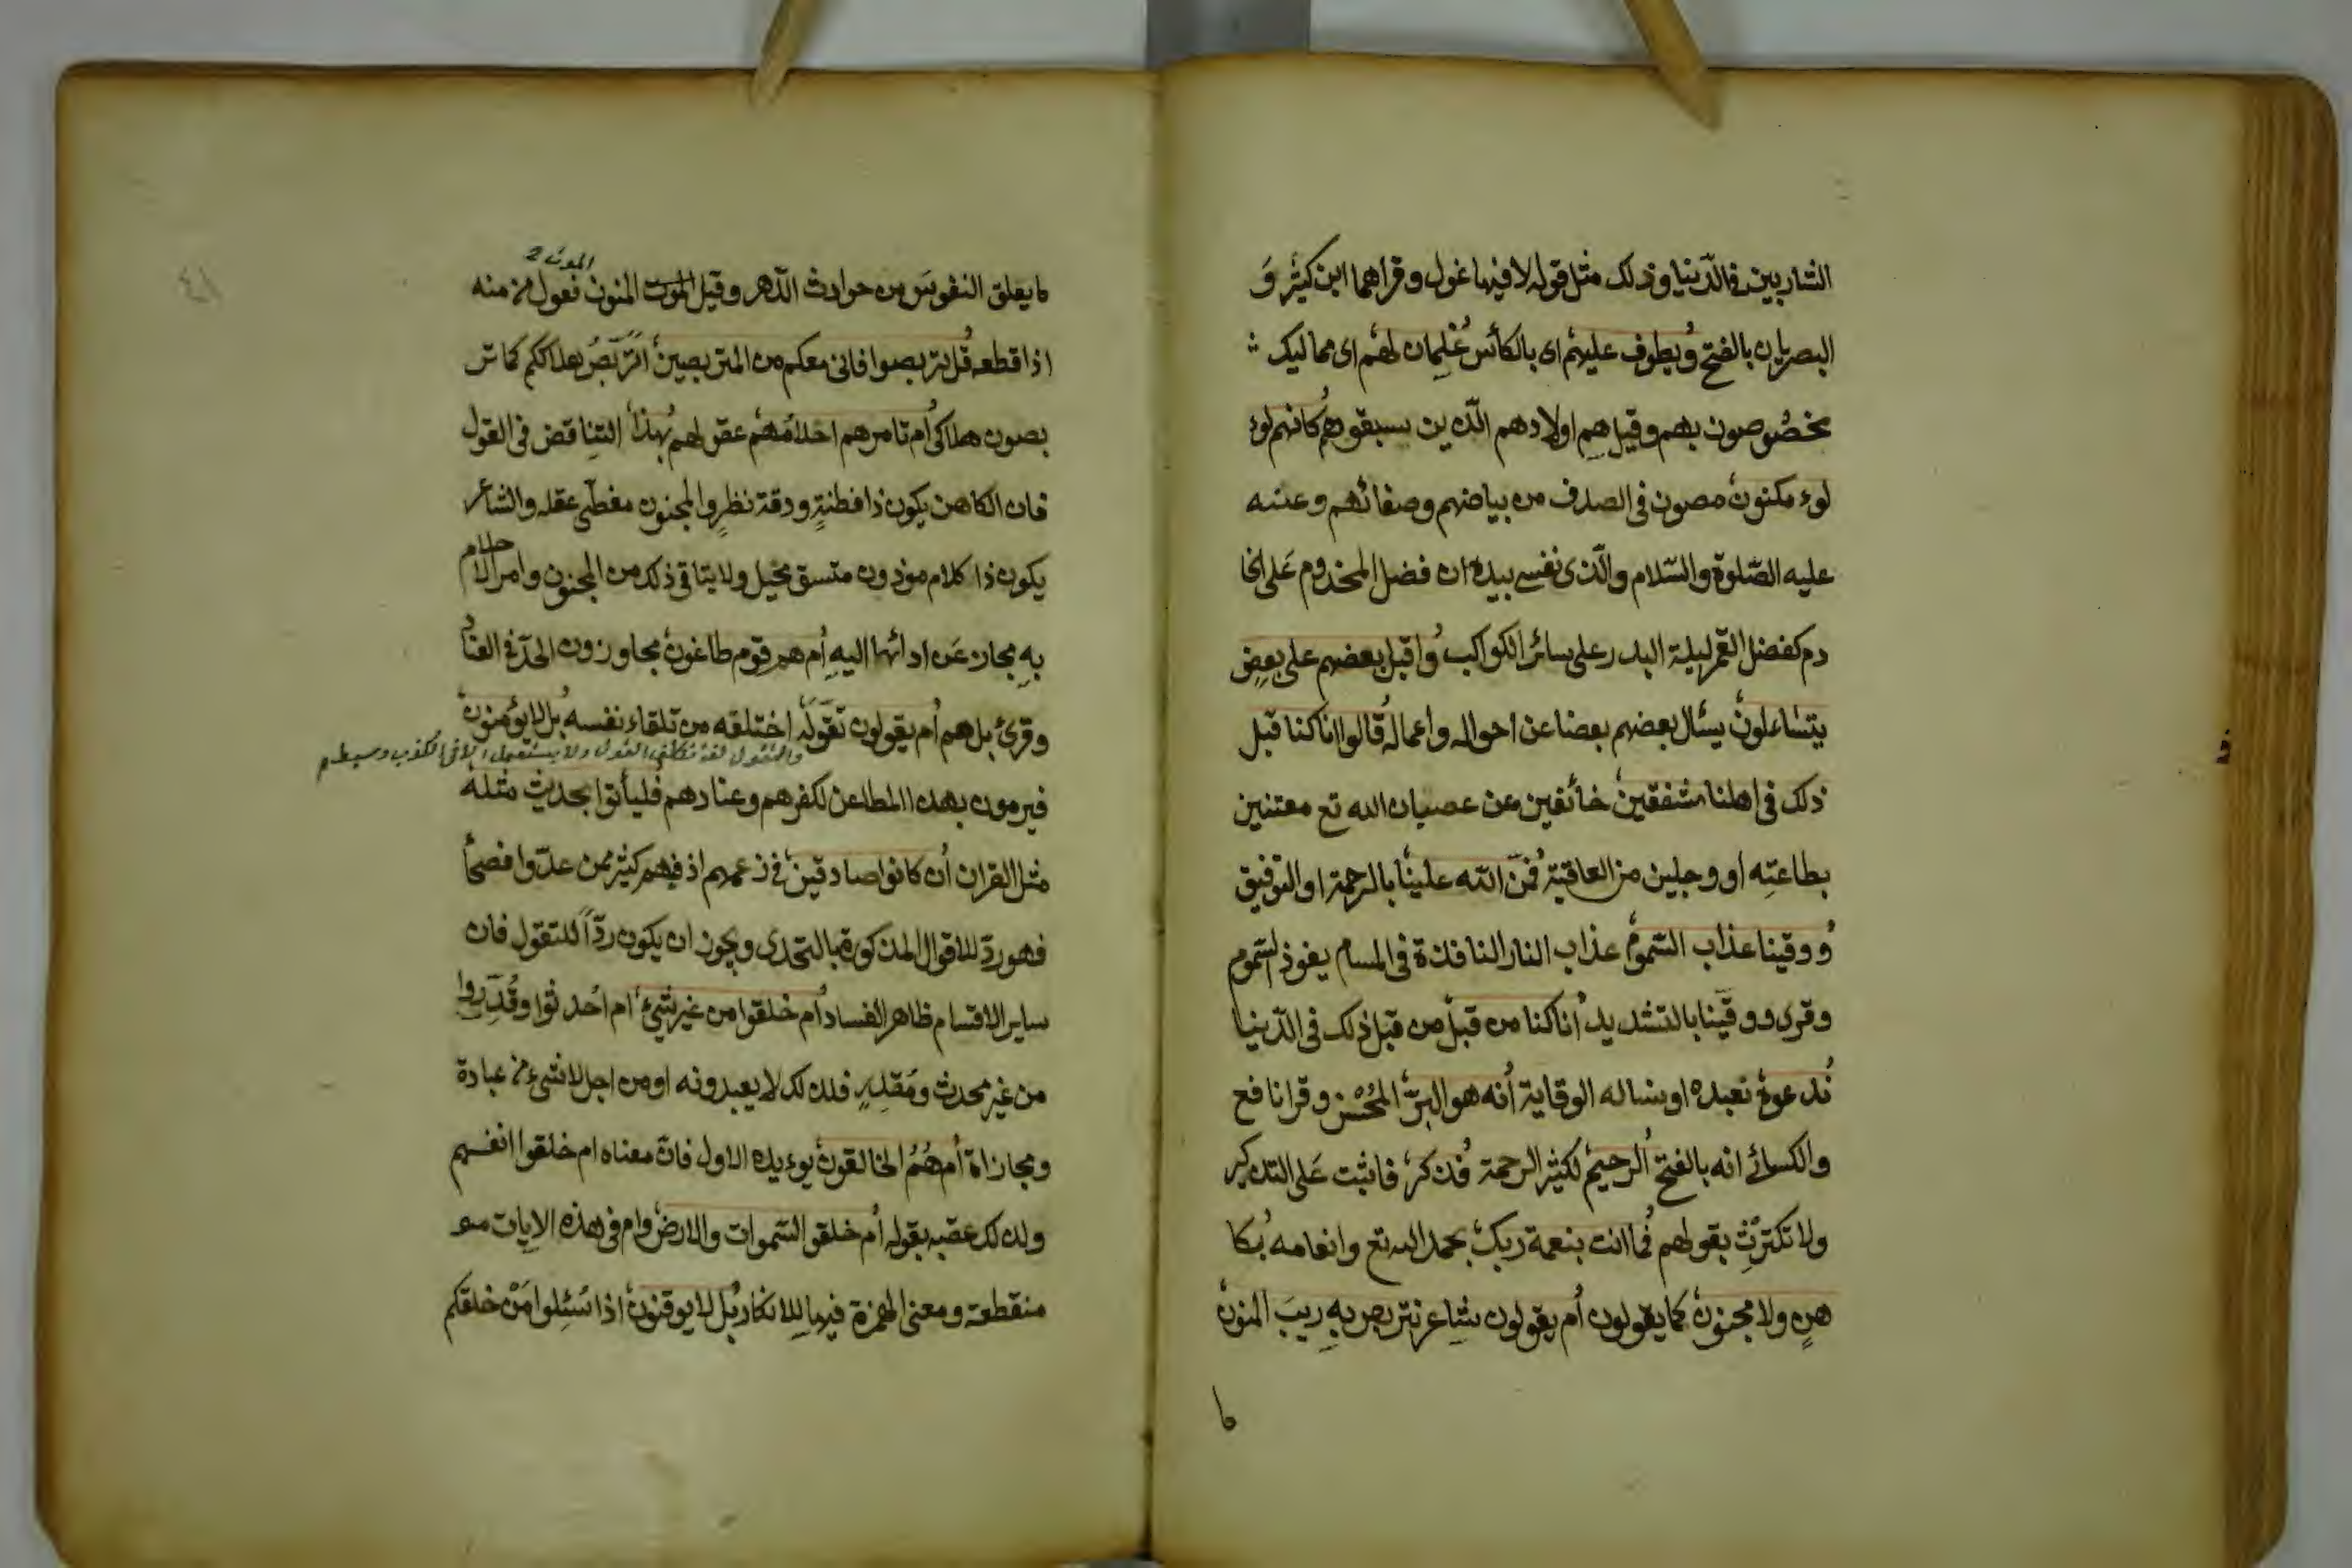 الشاربين فى الدّنيا وذلك مثل قوله لا فيها غول وقراهما ابن كثير وَ
البصريان بالفتح ويطوف عليهم اى بالكأس غلمان لهم اى مماليك
مخصُوصون بهم وقيل هم اولادهم الّذين سبقوهم كانهم لوء
لوء مكنون مصون فى الصدف من بياضهم وصفائهم وعنه
عليه الصّلوة والسّلام والّذى نفسى بيده ان فضل المخدوم عَلى الخا
دم كفضل القمر ليلة البدر على سائر الكواكب واقبل بعضهم على بعض
يتساءلون يسئال بعضهم بعضا عن احواله واعماله قالوا انا كنا قبل
ذلك فى اهلنا مشفقين خائفين من عصيان الله تع معتنين
بطاعته او وجلين من العاقبة فمنّ الله علينا بالرحمة او التوفيق
ووقينا عذاب السّموم عذاب النار النافذة فى المسام يفوذ السّموم
وقرى ووقّينا بالتشديد انا كنا من قبل من قبل ذلك فى الدّنيا
ندعوه نعبده او نساله الوقاية انه هو البرّ المُحْسن وقرا نافع
والكسائے انه بالفتح الرحيم لكثير الرحمة فذكر فاثبت عَلى التذكير
ولا تكترث بقولهم فما انت بنعمة ربك بحمد الله تع وانعامه بكا
هن ولا مجنون كما يقولون أم يقولون شاعر نتربص به ريبَ المنون
ما يعلق النفوسَ من حوادث الدّهر وقيل الموت المنون فعول من منه
الموت
اذا قطعه قل تربصوا فانى معكم من المتربصين اتربّصُ هلاككم كما تتر
بصون هلاكى أم تامرهم احلامهم عقولهم بهذا التناقض فى القول
فان الكاهن يكون ذا فطنةٍ ودقة نظرٍ والمجنون مغطّى عقله والشاعر
يكون ذا كلام موزون متسق مخيل ولا يتاقى ذلك من المجنون وامر الاحلام
به مجاز عَن ادائها اليه أم هم قوم طاغون مجاوزون الحدّ فى العنا
وقرئ بل هم أم يقولون تقوّله اختلقه من تلقاء نفسه بل لا يؤمنون
والتقول لغة تكلف القول ولا يستعمل الا فى الكذب وسيط
فيرمون بهذه المطاعن لكفرهم وعنادهم فليأتوا بحديث مثله
مثل القران أن كانوا صادقين فى زعمهم اذ فيهم كثير ممن عدّوا فصحأ
فهو ردّ للاقوال المذكورة بالتحدى ويجوز ان يكون ردّاً للتقول فان
ساير الاقسام ظاهر الفساد أم خلقوا من غير شىء ام احدثوا وقُدِّروا
من غير محدث ومُقدِرٍ فلذلك لا يعبدونه او من اجل لا شىء من عبادة
ومجازاة أم هُمُ الخالقون يوءيده الاول فانّ معناه ام خلقوا انفسهم
ولذلك عقبه بقوله أم خلقوا السّموات والارض وام فى هذه الايات
منقطعة ومعنى الهمزة فيها للانكار بل لا يوقنون اذا سُئِلوا مَنْ خلقكم